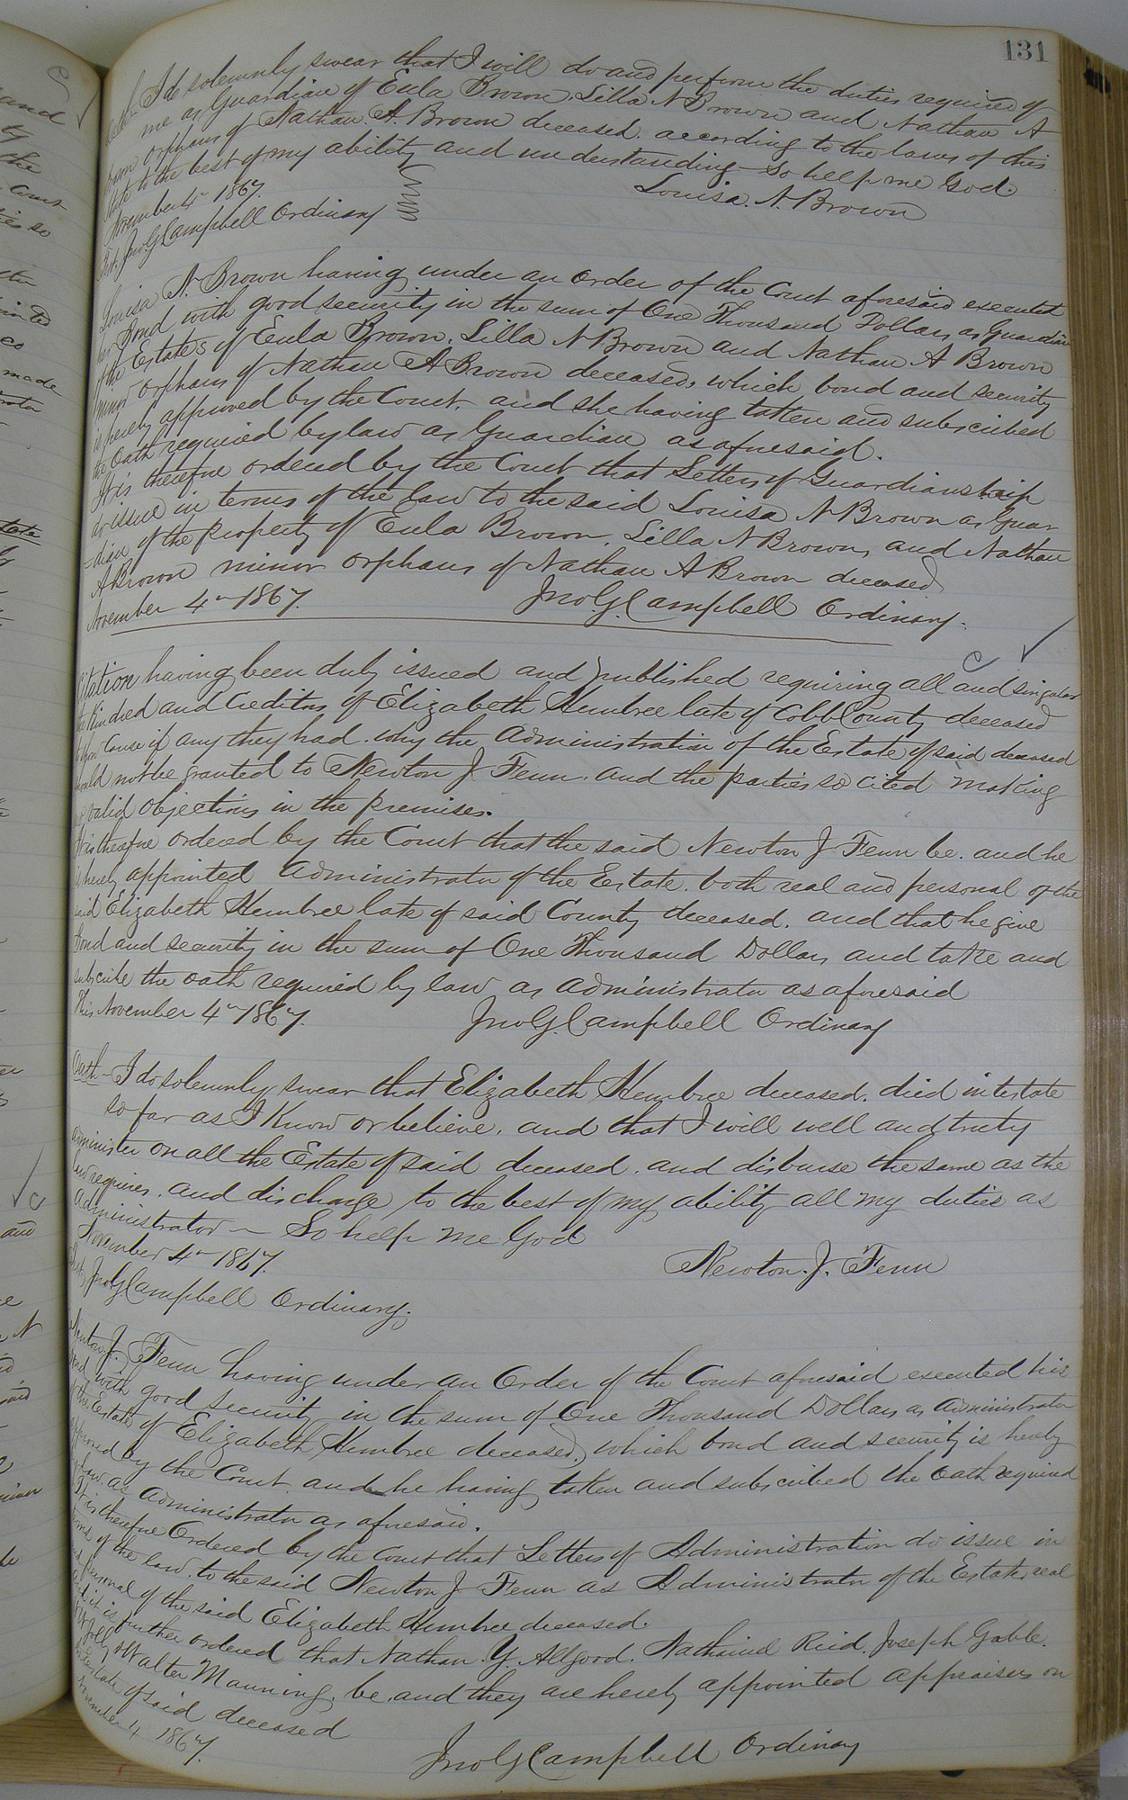 131
Oath I do solemnly swear that I will do and perform the duties required of
me as Guardian of Eula Brown, Lilla N Brown and Nathan A
Brown orphans of Nathan A. Brown deceased. according to the laws of this
State to the best of my ability and understanding So help me God.
November 4th 1867. Louisa. N. Brown
Test, Jno G Campbell Ordinary
Louisa N. Brown having under an Order of the Court aforesaid executed
her Bond with good security in the sum of One Thousand Dollars as Guardian
of the Estates of Eula Brown. Lilla N Brown and Nathan A Brown
minor orphans of Nathan A Brown deceased, which bond and security
is hereby approved by the Court. and she having taken and subscribed
the Oath required by law as Guardian as aforesaid.
It is therefore ordered by the Court that Letters of Guardianship
do issue in terms of the law to the said Louisa N Brown as Guar
-dian of the property of Eula Brown. Lilla N Brown, and Nathan
A Brown minor orphans of Nathan A Brown deceased
November 4th 1867. Jno. G. Campbell Ordinary.
Citation having been duly issued and published requiring all and singular
the Kindred and Creditors of Elizabeth Hembree late of Cobb County deceased
to show Cause if any they had. why the administration of the Estate of said deceased
should not be granted to Newton J Fenn. and the parties so cited making
no valid objections in the premises.
It is therefore ordered by the Court that the said Newton J Fenn be. and he
is hereby appointed Administrator of the Estate. both real and personal of the
said Elizabeth Hembree late of said County deceased. and that he give
bond and security in the sum of One Thousand Dollars and take and
subscribe the oath required by law as administrator as aforesaid
This November 4th 1867. Jno G. Campbell Ordinary
Oath – I do solemnly swear that Elizabeth Hembree deceased. died intestate
so far as I Know or believe. and that I will well and truly
administer on all the Estate of said deceased. and disburse the same as the
law requires. and discharge to the best of my ability all my duties as
Administrator – So help me God
November 4th 1867. Newton. J. Fenn
Test, Jno G Campbell Ordinary.
Newton J. Fenn having under an Order of the Court aforesaid executed his
bond with good security in the sum of One Thousand Dollars as administrator
of the Estate of Elizabeth Hembree deceased, which bond and security is hereby
approved by the Court and he having taken and subscribed the oath required
by law as administrator as aforesaid.
It is therefore Ordered by the Court that Letters of Administration do issue in
terms of the law. to the said Newton J Fenn as Administrator of the Estate real
and personal of the said Elizabeth Hembree deceased.
And it is further ordered that Nathan. Y. Allgood. Nathaniel Reid. Joseph Gable.
Walter Manning. be. and they are hereby appointed appraisers on
the Estate of said deceased
November 4 1867. Jno G Campbell Ordinary